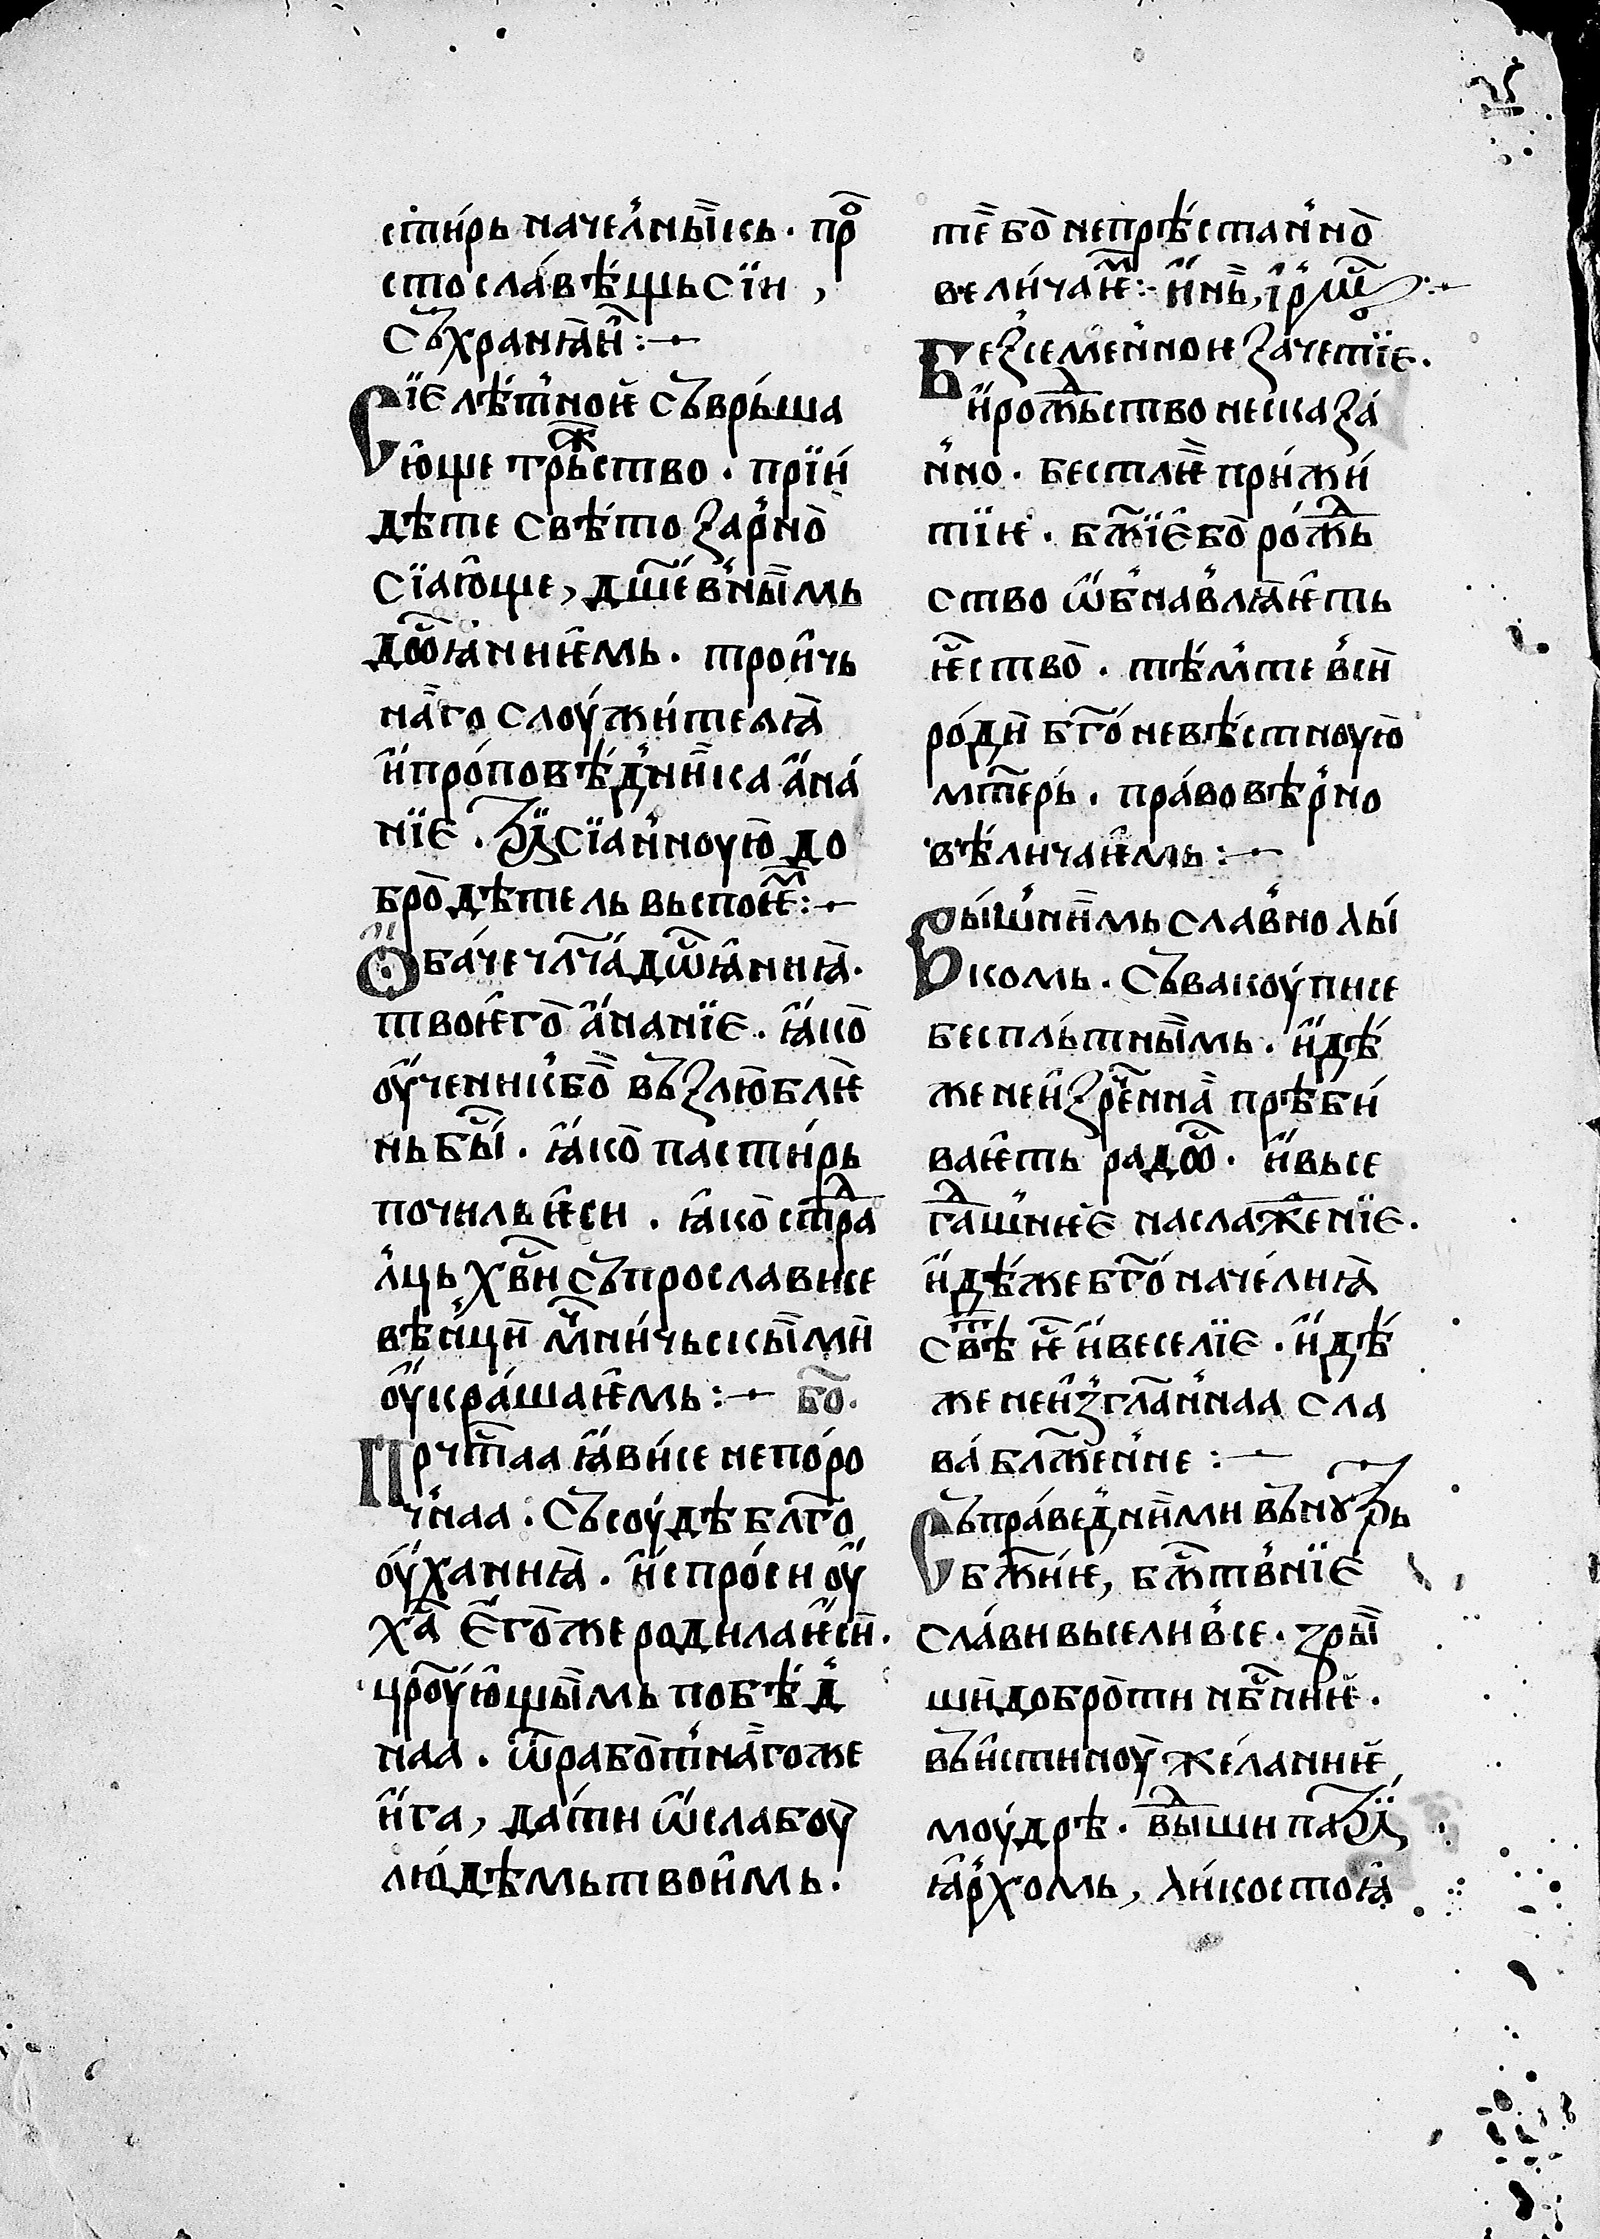 стⷩ҇и́рь начел҆ны̏ись · прⷪ҇
стослав́ѣщьсїи ,
Съхранꙗ҆и҆ :~
Сїе лѣт҆ноѥ съврь́ша
ю҆ще трьⷤ҇ство · прїи́
дѣте свѣ́тозар҆но̀
сїаю҆ще, дш҃е́в҆ны̏мь
дѡ҃ꙗ́нниѥмь · трои҆чь
на̏го слоу́жи́телꙗ̀
и҆про́повѣ́д҆ни̏ка а҆на́
нїе · Ꙁⷣ҇сїан҆ноую̀ до
бро̀дѣтель вьспоѥⷨ҇ :~
Ѻ҆ба́че чл҃ча́ дѡ҃ꙗ́ннꙗ̀ ·
твоѥго̀ а҆нанїе · ꙗ҆ко̀
оу҆ченик҆бо̏ въꙁлю҆блѥ
ньбы҃ · ꙗ҆ко̀ пастирь
почильѥси · ꙗ҆ко̀ стрⷣ҇а
л҆ць хв҃и съпрослависе
вѣн҆ци̏ мч҃ни́чьскы̏ми̏
оу҆кра́шаѥмь :~ бо҃ ·
Прчⷭ҇таа ꙗ҆ви́се непо́ро
ч҆наа · съсоу́дѣ блг҃о
оу҆ха́ннꙗ̀ · и҆спро́си оу҆
ха҃ е҆го̀же родилаѥси̏ ·
црⷭ҇оу́ю҆щы̏мь побѣ́д҆
наа · ѿрабо̀т҆на̏гоже
и҆га, да́ти ѡ҆слабоу̀
лю́дѣмьтвои҆мь ·
те̏ бо̀ непрѣ́стан҆но̀
вели́чаѥⷨ҇ :~ и҆ нн҃ꙗ, і҆рмⷭ҇ :~
Беꙁ҆семе́н҆ноѥ ꙁа́четїе ·
и҆рожⷣ҇ьство несказа́
н҆но · бестлѥ̏ при́жи́
тїѥ · бж҃їе҆бо̀ ро́жⷣ҇ь
ство ѡ҆б҆нав҆лꙗ҆ѥть
ѥⷭ҇ство̀ · тѣ́м҆те в҆си̏
ро́ди̏ бг҃о́невѣ́стноую̀
мт҃ерь́ · пра́вовѣр҆но
вѣ́личаѥмь :~
Вы́ш҆ни̏мь слав҆но лы́
комь · съвакоу́писе
бесплъ́тны̏мь · и҆дѣ́
женеи҆зрⷱ҇е́нна̏ прѣ́би́
ваѥть радⷪ҇ · и҆вьсе
гⷣ҇аш҆нѥе наслаⷤ҇енїе ·
и҆дѣ́жебг҃о́наче́лнꙗ̀
свⷮ҇ѣ ѥ҃ и҆веселїе · и҆дѣ́
женеи҆з҆гл҃ан҆наа сла
ва́ бл҃жен҆не :~
Съпра́вед҆ни̏ми въноу҆трь
бж҃и́ѥ, бжⷭ҇тв҆нїе
сла́ви вьселив҆се · зры̏
ши̏добро̀ти нбⷭ҇ниѥ ·
въи́стиноу̀ же́ланиѥ,
моу́дрѣ · вⷣ҇ы́ши патрї
ꙗ҆р҆хомь, ли́костоꙗ̀